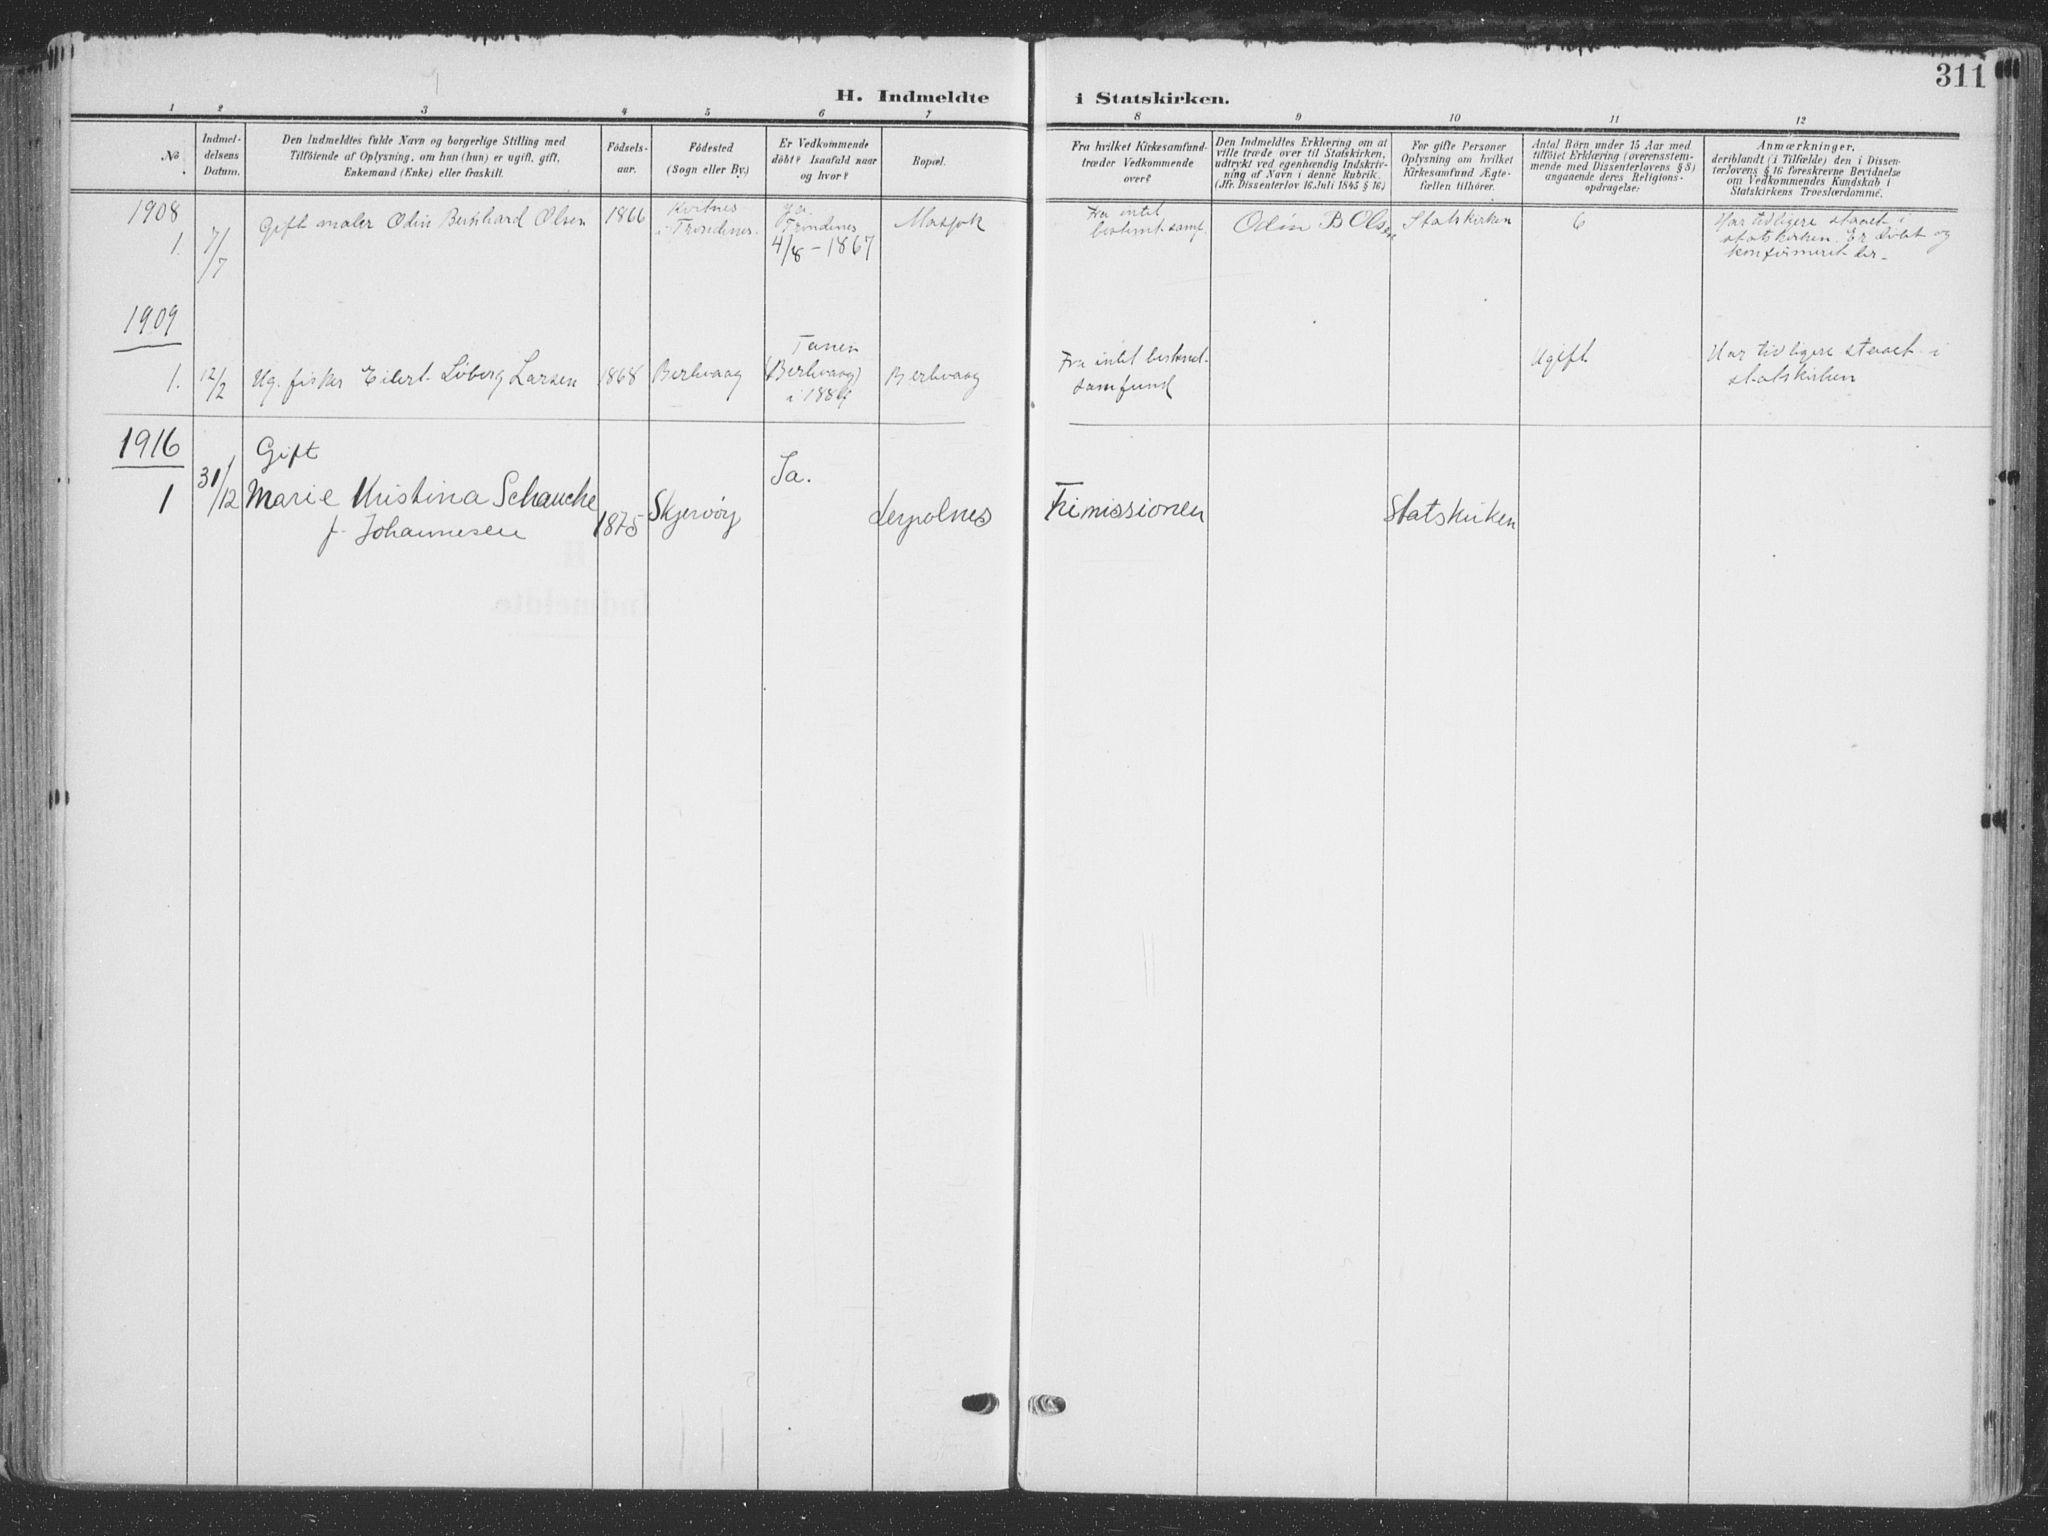 311
H. Indmeldte i Statskirken.
1 2 3 4 5 6 7 8 9 10 11 12
No.
Indmel-
delsens
Datum.
Den Indmeldtes fulde Navn og borgerlige Stilling med
Tilföiende af Oplysning, om han (hun) er ugift, gift,
Enkemand (Enke) eller fraskilt.
Födsels-
aar.
Födested
(Sogn eller By.)
Er Vedkommende
döbt? Isaafald naar
og hvor?
Bopæl.
Fra hvilket Kirkesamfund
træder Vedkommende
over?
Den Indmeldtes Erklæring om at
ville træde over til Statskirken,
udtrykt ved egenhændig Indskriv-
ning af Navn i denne Rubrik.
(Jfr. Dissenterlov 16 Juli 1845 § 16)
For gifte Personer
Oplysning om hvilket
Kirkesamfund Ægte-
fællen tilhörer.
Antal Börn under 15 Aar med
tilföiet Erklæring (overensstem-
mende med Dissenterlovens § 8)
angaaende deres Religions-
opdragelse:
Anmærkninger,
deriblandt (i Tilfælde) den i Dissen-
terlovens § 16 foreskrevne Bevidnelse
om Vedkommendes Kundskab i
Statskirkens Troeslærdomme.
1908
1. 7/7
Gift maler Odin Bernhard Olsen
1866
Kvitnes
i Trondenes.
Ja.
Trondenes
4/8-1867
Masjok
Fra intet
bestemt samf.
Odin B Olsen
Statskirken
6
Har tidligere staaet i
statskirken. Er döbt og
konfirmeret der.
1909
1. 12/2
Ug. fisker Eilert Löberg Larsen
1868
Berlevaag
Tanen
(Berlevaag)
i 1884
Berlevaag
Fra intet bestemt
samfund
Ugift
Har tidligere staaet i
statskirken
1916
1 31/12
Gift
Marie Kristina Schanche
f. Johannesen
1875
Skjervöy
Ja.
Leirpolnes
Frimissionen
Statskirken